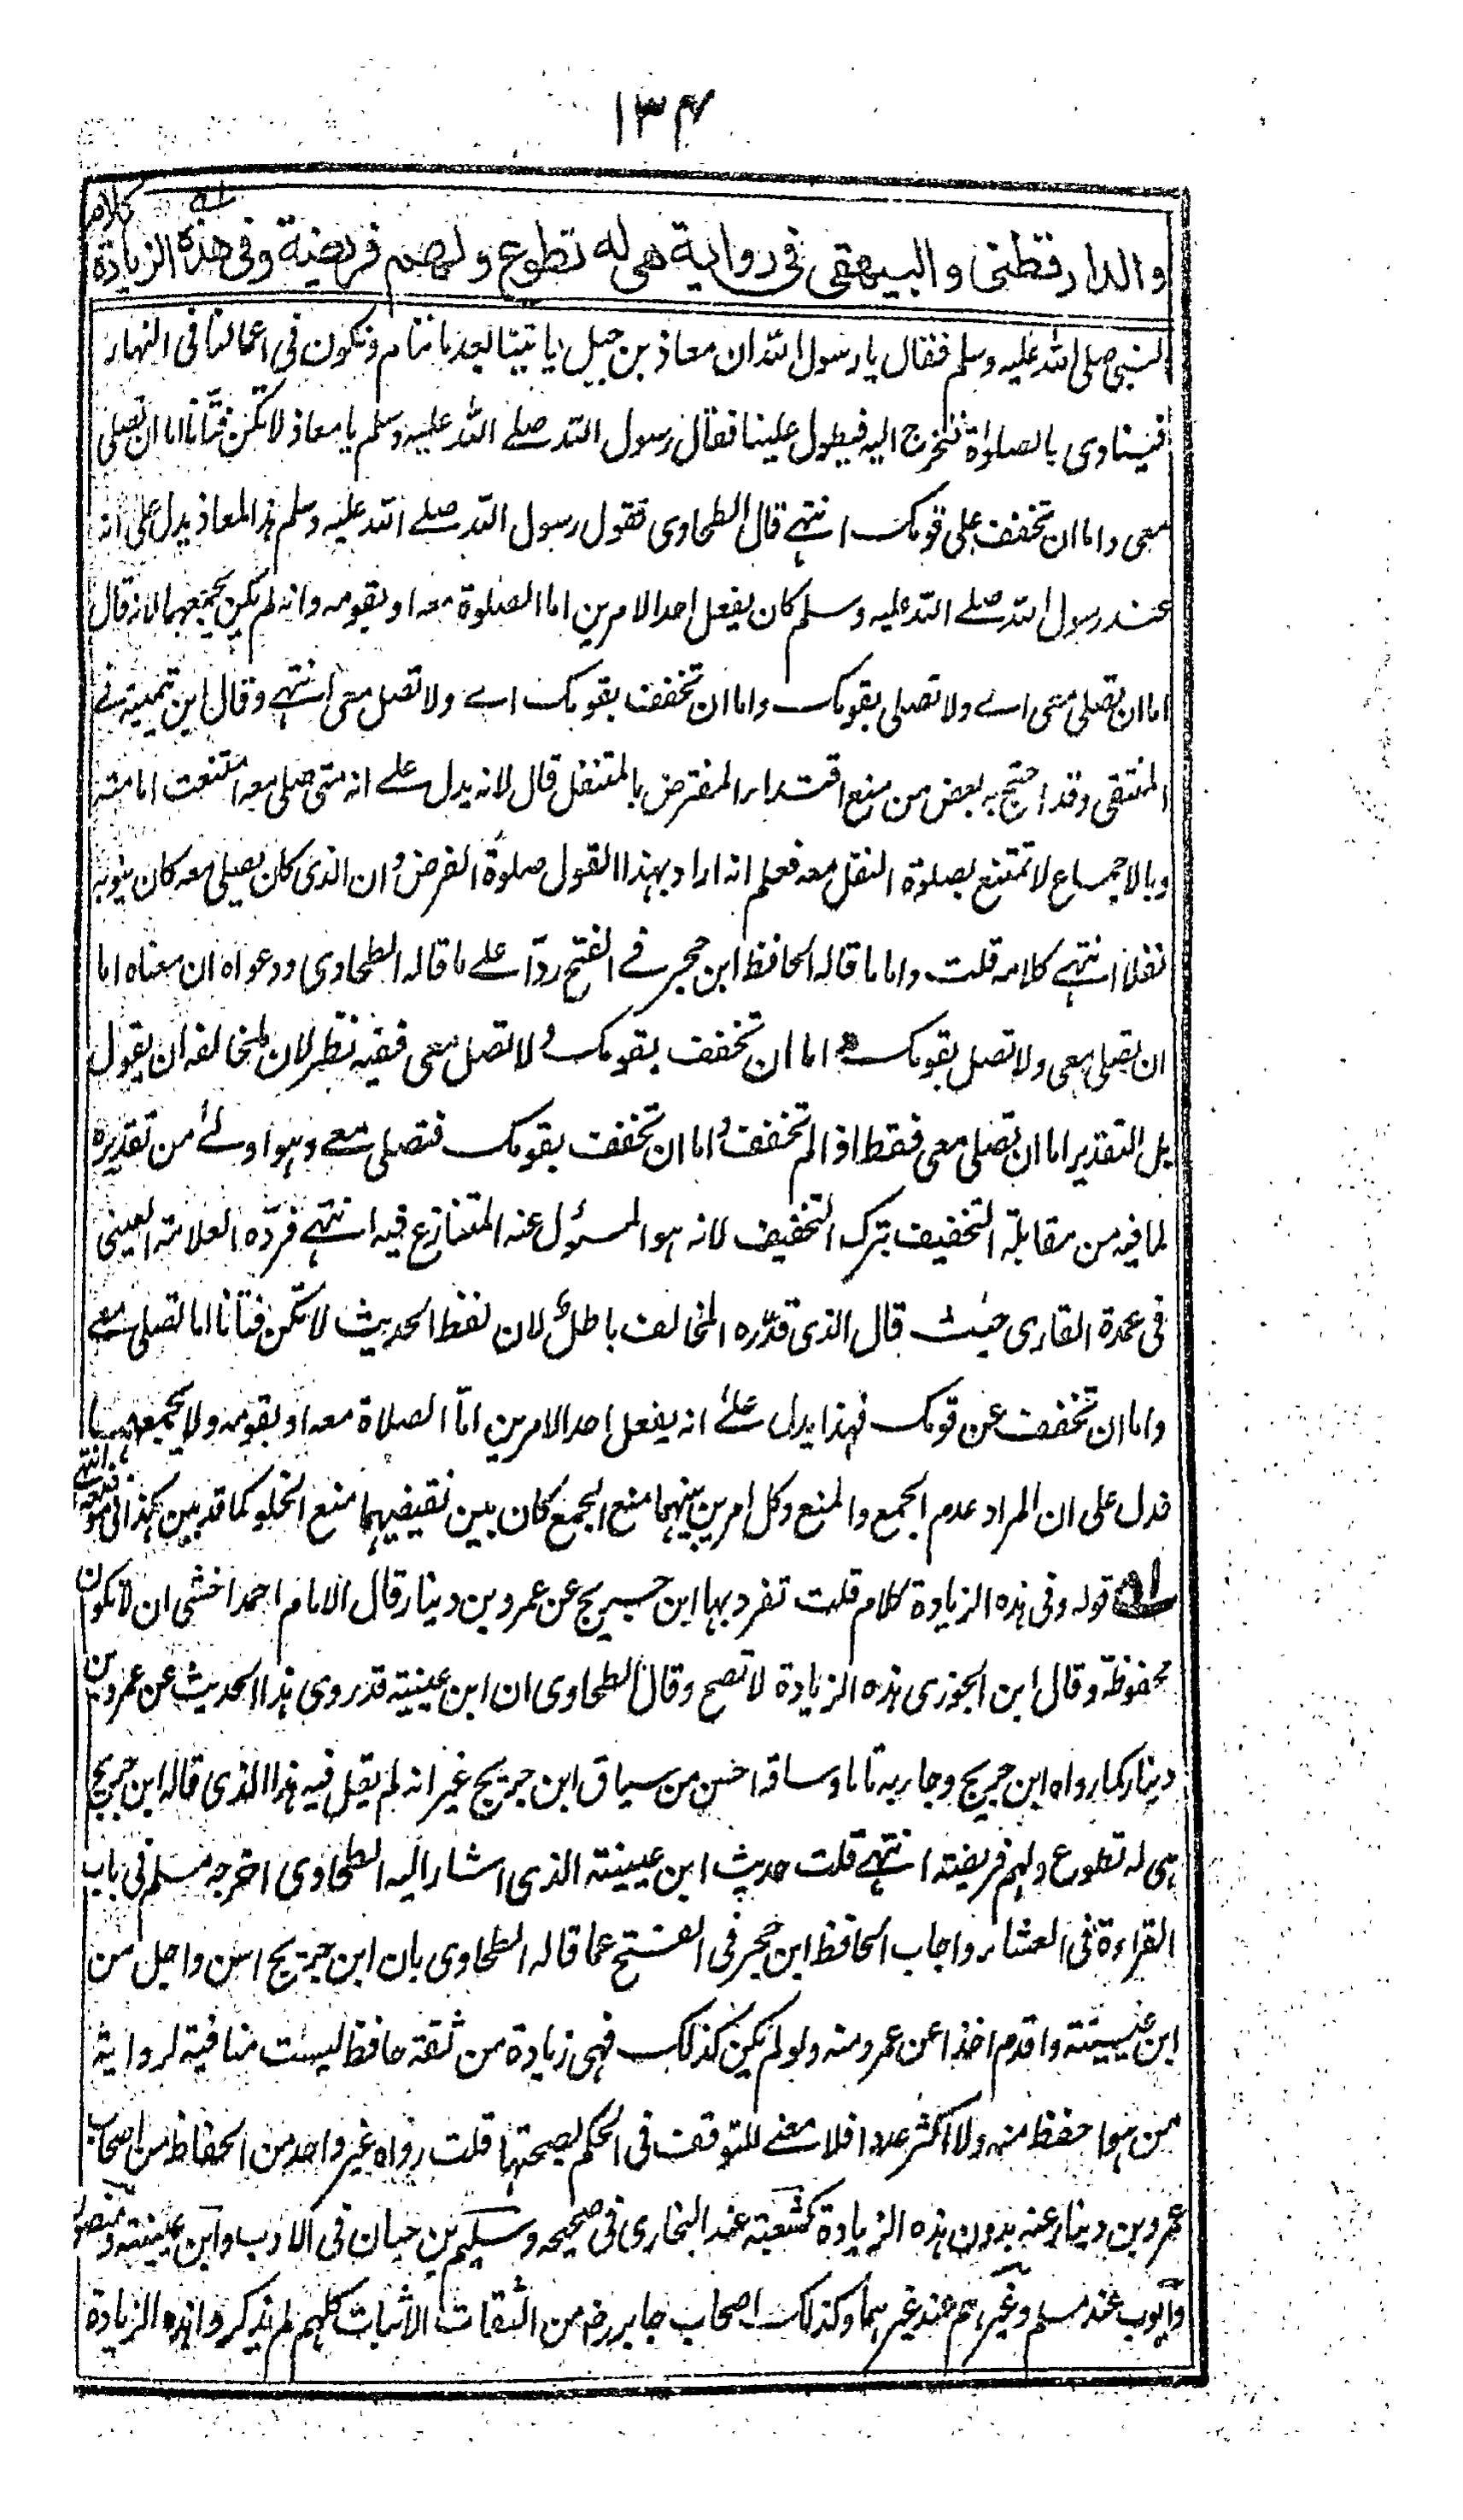 ۱۳۴
والدارقطنی والبیهقی فی روایة هی له تطوع ولهم فریضة وفی هذه الزیادة ؎۱ کلام
النبی صلی الله علیه وسلم فقال یا رسول الله ان معاذ بن جبل یاتینا بعد ما ننام ونکون فی اعمالنا فی النهار
فینادی بالصلوٰة فنخرج الیه فیطول علینا فقال رسول الله صلے الله علیه وسلم یا معاذ لا تکن فتّانا اما ان تصلی
معی واما ان تخفف علی قومک انتهے قال الطحاوی فقول رسول الله صلے الله علیه وسلم هذا لمعاذ یدل علی انه
عند رسول الله صلے الله علیه وسلم کان یفعل احد الامرین اما الصلوة معه او بقومه وانه لم یکن یجمعهما لانه قال
اما ان تصلی معی اے ولا تصلی بقومک واما ان تخفف بقومک اے ولا تصل معی انتهے وقال ابن تیمیة فے
المنتقی وقد احتج به بعض من منع اقتداء المفترض بالمتنفل قال لانه یدل علے انه متی صلی معه امتنعت امامته
وبالاجماع لا تمتنع بصلوة النفل معه فعلم انه اراد بهذا القول صلوة الفرض وان الذی کان یصلی معه کان ینویه
نفلا انتهے کلامه قلت واما ما قاله الحافظ ابن حجر فے الفتح ردّا علے ما قاله الطحاوی ودعواه ان معناه اما
ان تصلی معی ولا تصل بقومک و اما ان تخفف بقومک ولا تصل معی ففیه نظر لان للمخالفه ان یقول
بل التقدیر اما ان تصلی معی فقط اذا لم تخفف واما ان تخفف بقومک فتصلی معے وهو اولے من تقدیره
لما فیه من مقابلة التخفیف بترک التخفیف لانه هو المسؤل عنه المتنازع فیه انتهے فردّه العلامة العینی
فی عمدة القاری حیث قال الذی قدّره المخالف باطل لان لفظ الحدیث لا تکن فتّانا اما تصلی معے
واما ان تخفف عن قومک فهذا یدل علے انه یفعل احد الامرین امّا الصلاة معه او بقومه ولا یجمعهما انتهے
فدل علی ان المراد عدم الجمع والمنع وکل امرین بینهما منع الجمع کان بین نقیضیهما منع الخلو کما قد بین هکذا فی موضعه
؎۱ قوله وفی هذه الزیادة کلام قلت تفرد بها ابن جریج عن عمرو بن دینار قال الامام احمد اخشی ان لا تکون
محفوظة وقال ابن الجوزی هذه الزیادة لا تصح وقال الطحاوی ان ابن عیینة قد روی هذا الحدیث عن عمرو بن
دینار کما رواه ابن جریج وجاء به تاما وساقه احسن من سیاق ابن جریج غیر انه لم یقل فیه هذا الذی قاله ابن جریج
هی له تطوع ولهم فریضة انتهے قلت حدیث ابن عیینة الذی اشار الیه الطحاوی اخرجه مسلم فی باب
القراءة فی العشاء واجاب الحافظ ابن حجر فی الفتح عما قاله الطحاوی بان ابن جریج اسن واجل من
ابن عیینة واقدم اخذا عن عمرو منه ولو لم یکن کذلک فهی زیادة من ثقة حافظ لیست منافیة لروایة
من هو احفظ منه ولا اکثر عددا فلا معنے للتوقف فی الحکم بصحتها قلت رواه غیر واحد من الحفاظ من اصحاب
عمرو بن دینار عنه بدون هذه الزیادة کشعبة عند البخاری فی صحیحه وسلیم بن حیان فی الادب وابن عیینة ومنصور
وایوب عند مسلم وغیرهم عند غیرهما وکذلک اصحاب جابر رض من الثقات الاثبات کلهم لم یذکروا هذه الزیادة